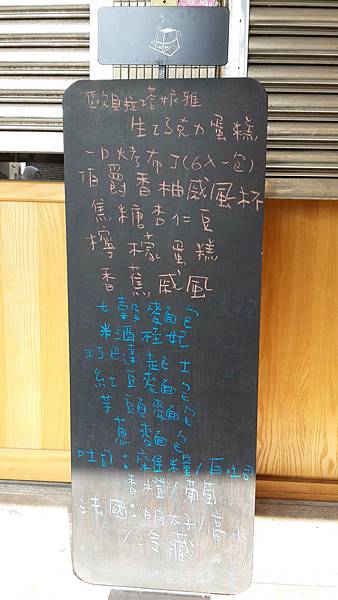 歐貝拉塔妮雅
生巧克力蛋糕
一口烤布丁(6入一包)
伯爵香柚戚風杯
焦糖杏仁豆
檸檬蛋糕
香蕉戚風
七穀麵包
米酒桂妃
巧巴達起士
紅豆麵包
芋頭麵包
蔥麵包
吐司：雜糧/白吐司
香橙/葡萄
法國：明太子/高水
/冷藏